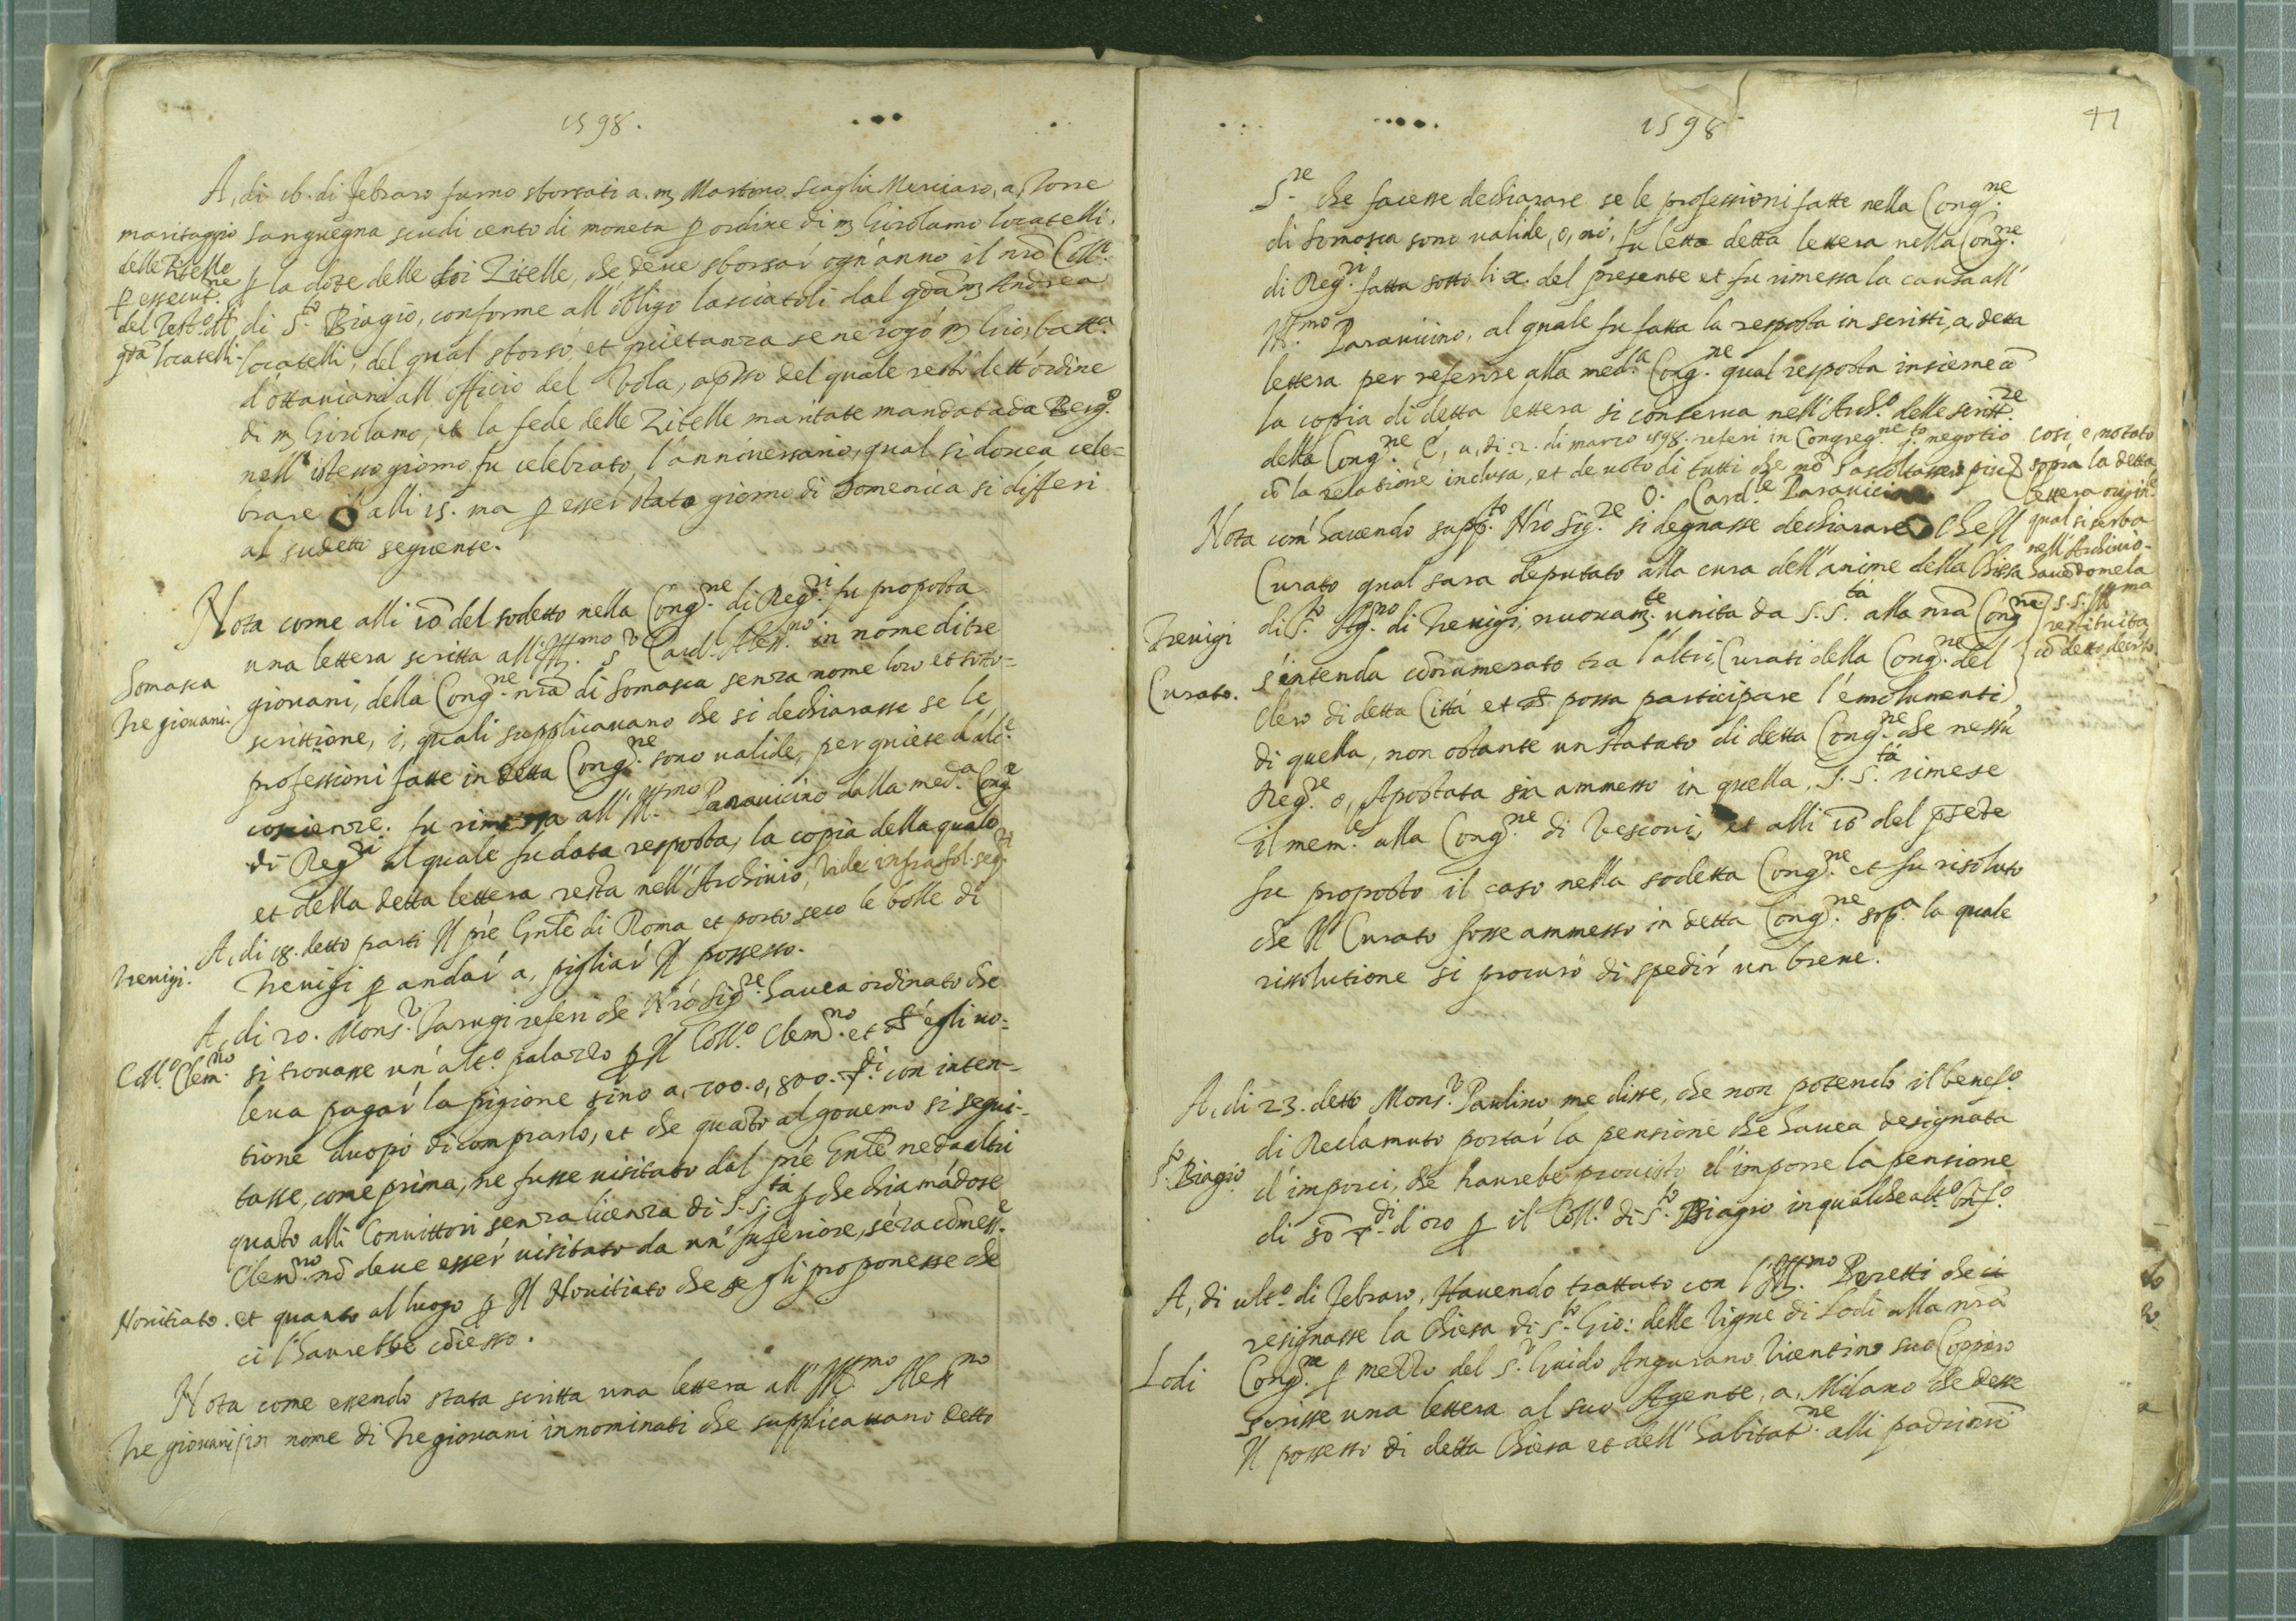 1598.
A, di 16. di febraro furno sborsati a. m Martino Scaglia Merciaro, a, Torre
maritaggio
delle Zitelle
p essecut.ne
del Test.o di
qdā locatelli-
sanguegna scudi cento di moneta p ordine di m Girolamo locatelli.
p la dote delle doi Zitelle, che deue sborsar ogn'anno il nrō Coll.o
di S.to Biagio, conforme all'obligo lasciatoli dal qdā m Andrea
locatelli, del qual sborso, et quietanza se ne rogò m Gio: batt.a
d'ottauiani all'officio del Vola, apsso del quale restò dett'ordine
di m Girolamo, et la fede delle Zitelle maritate mandata da Berg.o
nell'istesso giorno fu celebrato l'anniuersario, qual si douea cele=
brare alli 15. ma p esser stato giorno di Domenica si differì
al sudetto seguente.
Nota come alli 10 del sodetto nella Cong.ne di Reg.ri fu proposta
Somasca
Tre giovani.
una lettera scritta all'Ill.mo S.r Card. Aless.no in nome di tre
giouani, della Cong.ne nrā di Somasca senza nome loro et soto=
scrittione, i, quali supplicauano che si dechiarasse se le
professioni fatte in detta Cong.ne sono valide, per quiete d'alc.e
coscienze. fu rimessa all'Ill.mo Parauicino dalla med.a Cong.e
di Reg.ri al quale fu data resposta, la copia della quale
et della detta lettera resta nell'Archiuio, vide infra fol. seq.ti
Treuigi.
A, di 18. detto partì Il prē Gnle di Roma et portò seco le bolle di
Treuigi p andar a, pigliar Il possesso.
Coll.o Clem.no
A, di 20. Mons.r Tarugi referì che Nrō Sig.re hauea ordinato che
si trouasse un'alt.o palazzo p Il Coll.o Clem.no et ch'egli uo=
leua pagar la pigione sino a, 700. o, 800. di con inten=
tione duopò di comprarlo, et che quāto al gouerno si segui=
tasse, come prima, ne fusse visitato dal prē Gnle ne da altri
quāto alli Conuittori senza licenza di S. S.tà p che chiamādose
Clem.no nō deue esser uisitato da un'Inferiore, sēza cōmess.e
Nouitiato.
et quanto al luogo p Il Nouitiato che se gli proponesse che
ci l'haurebbe cōcesso.
Nota come essendo stata scritta una lettera all'Ill.mo Aless.no
Tre giouani
in nome di Tre giouani innominati che supplicauano detto
41
1598
S.re che facesse dechiarare se le professioni fatte nella Cong.ne
di Somasca sono valide, o, nò. fu letta detta lettera nella Cong.ne
di Reg.ri fatta sotto li x. del presente et fu rimessa la causa all'
Ill.mo Parauicino, al quale fu fatta la resposta in scritti, a, detta
lettera per referire alla med.a Cong.ne qual resposta insieme cō
la copia di detta lettera si conserua nell'Arch.o delle scritt.re
della Cong.ne E, a, di 2. di marzo 1598. referì in Congreg.ne s.to negotio
cō la relatione inclusa, et de uoto di tutti che nō s'ascoltassero più
O. Card.le Parauicino
così, è, notato
sopra la detta
lettera orig.le
qual si serba
nell'Archiuio-
hauēdomela
S. S. Ill.ma
restituita
cō detto decreto.
Nota com'hauendo supp.to Nrō Sig.re si degnasse dechiarare che Il
Curato qual sara deputato alla cura dell'anime della Chiesa
Treuigi
Curato.
di S.to Ag.no di Treuigi, nuouam.te unita da S. S.tà alla nrā Cong.ne
s'intenda cōnumerato tra l'altri Curati della Cong.ne del
Clero di detta Città et possa participare l'emolumenti
di quella, non ostante un statuto di detta Cong.ne che nessū
Reg.re o, Apostata sia ammesso in quella, S. S.tà rimese
il mem.le alla Cong.ne di Vesconi, et alli 10 del pſete
fu proposto il caso nella sodetta Cong.ne et fu risoluto
che Il Curato fosse ammesso in detta Cong.ne sop.a la quale
rissolutione si procurò di spedir un breue.
A, di 23. detto Mons.r Paulino me disse, che non potendo il benef.o
di Reclamuto portar la pensione che hauea designata
S.to Biagio
d'imporci, che haurebe prouisto d'imporre la pensione
di 50 di d'oro p il Coll.o di S.to Biagio in qualche alt.o Bnf.o
A, di ult.o di febraro, Hauendo trattato con l'Ill.mo Peretti che ci
resignasse la Chiesa di S.to Gio: delle Vigne di Lodi alla nrā
Lodi
Cong.ne p mezzo del S.r Guido Angurano Vicentino suo Coppiero
scrisse una lettera al suo Agente, a, Milano che desse
Il possesso di detta Chiesa et dell'habitat.ne alli padri nrī